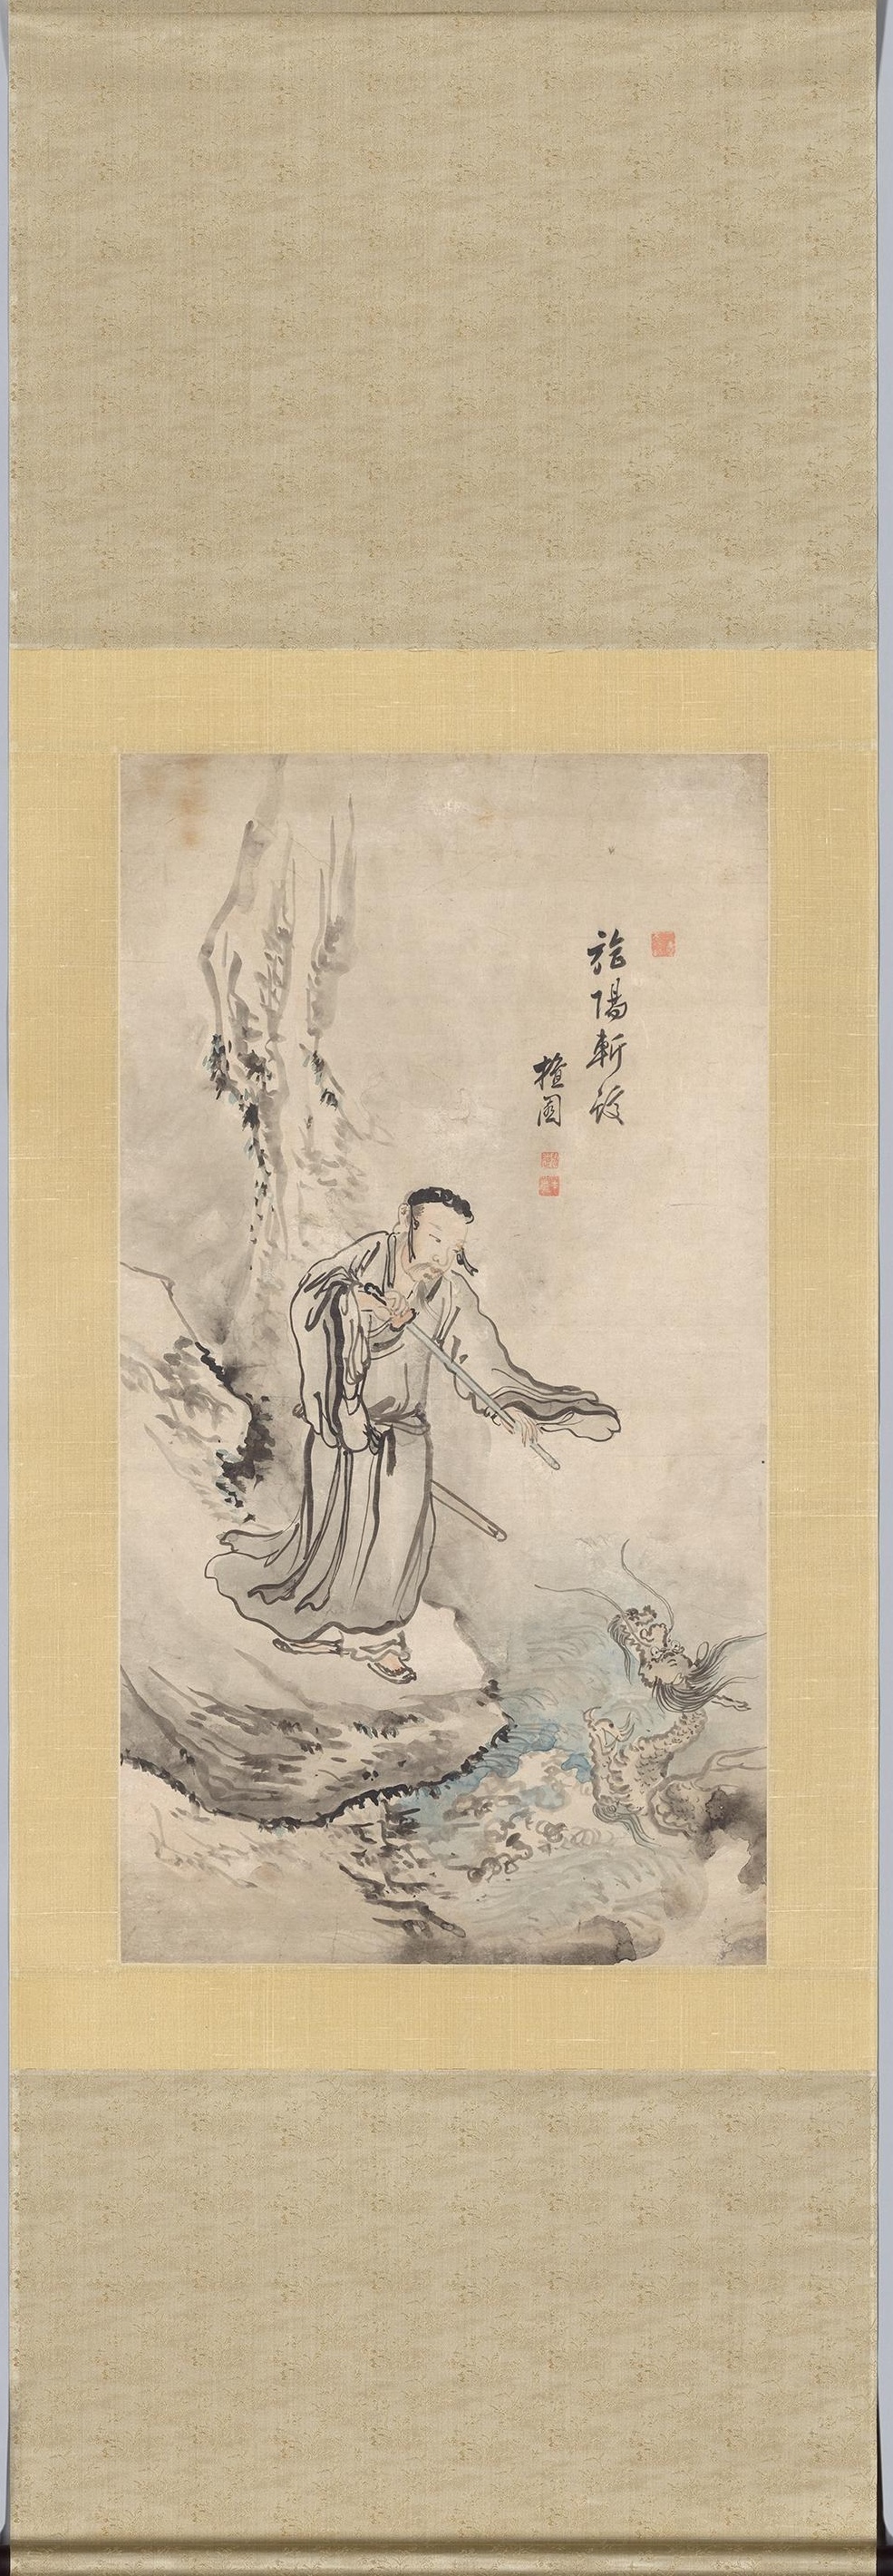 旌陽斬蛟
檀園